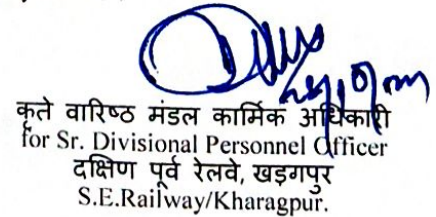 कृते वारिष्ठ मंडल कार्मिक अधिकारी
for Sr. Divisional Personnel Officer
दक्षिण पूर्व रेलवे, खड़गपुर
S.E.Railway/Kharagpur.